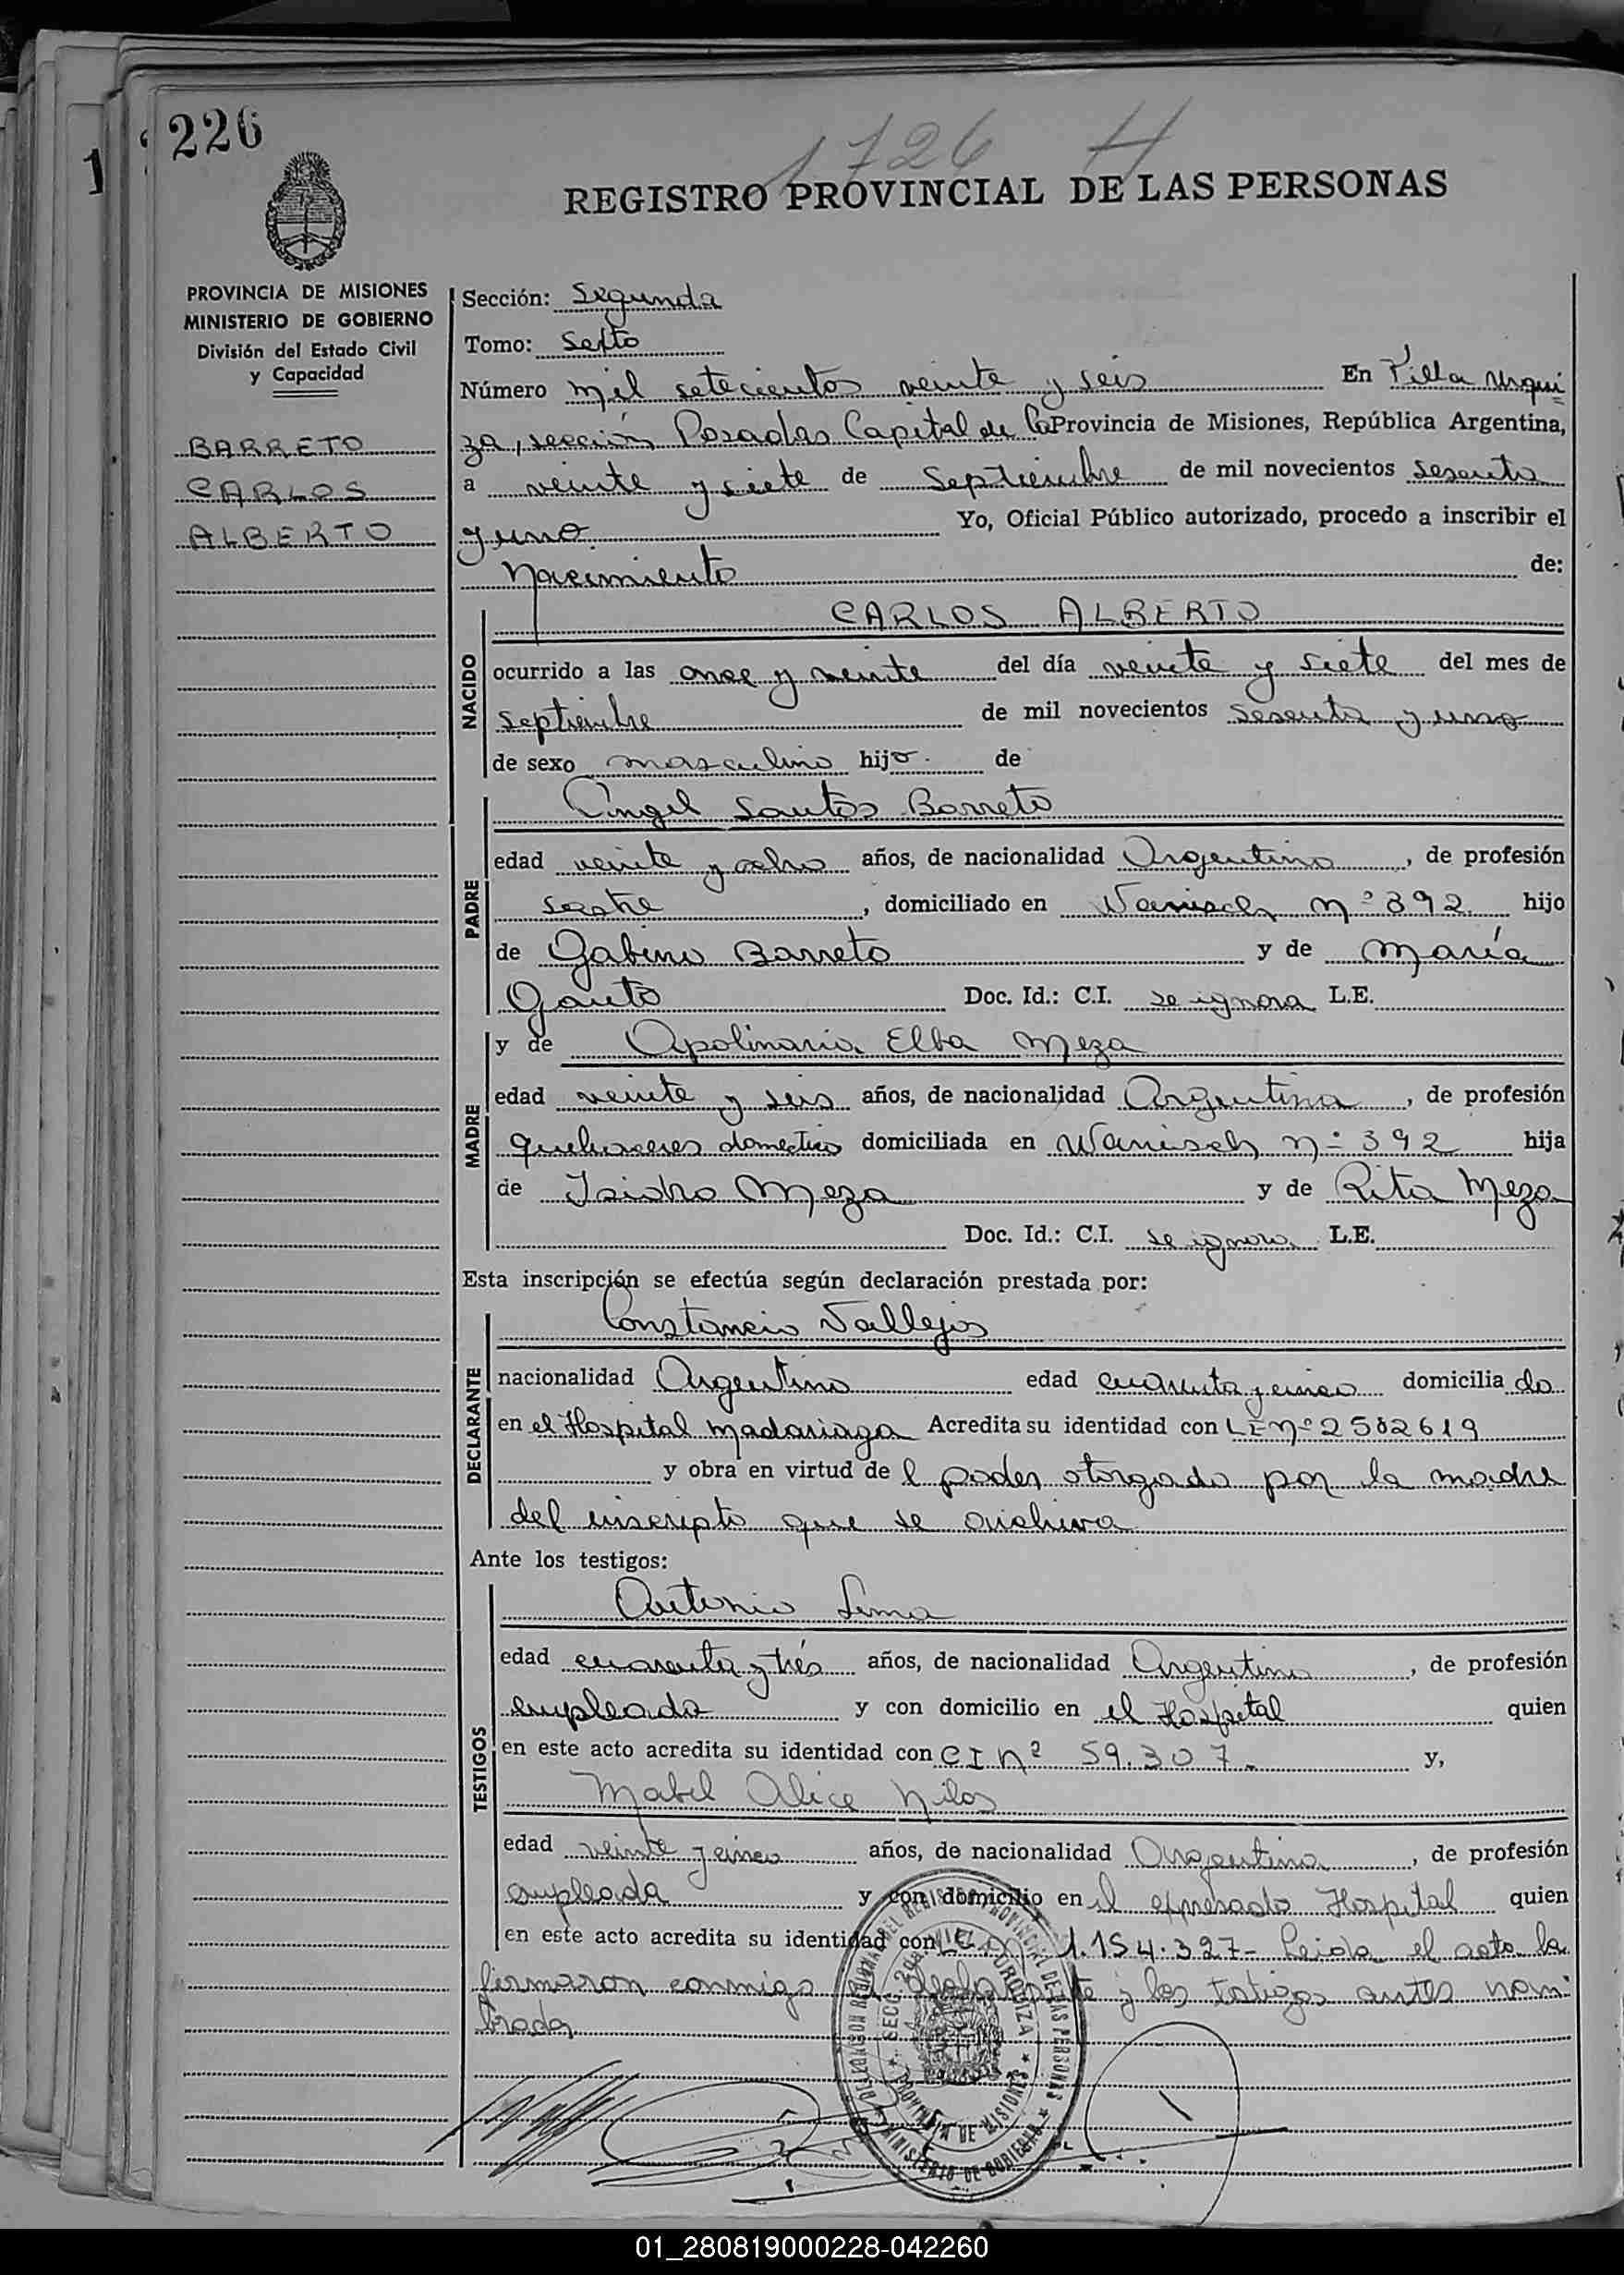 226
1726 H
REGISTRO PROVINCIAL DE LAS PERSONAS
PROVINCIA DE MISIONES
MINISTERIO DE GOBIERNO
División del Estado Civil
y Capacidad
BARRETO
CARLOS
ALBERTO
Sección: Segunda
Tomo: Sexto
Número mil setecientos veinte y seis En Villa Urqui
za, sección Posadas Capital de la Provincia de Misiones, República Argentina,
a veinte y siete de Septiembre de mil novecientos sesenta
y uno. Yo, Oficial Público autorizado, procedo a inscribir el
Nacimiento de:
NACIDO
CARLOS ALBERTO
ocurrido a las once y veinte del día veinte y siete del mes de
septiembre de mil novecientos sesenta y uno
de sexo masculino hijo. de
PADRE
Angel Santos Barreto
edad veinte y ocho años, de nacionalidad Argentina, de profesión
sastre, domiciliado en Nº 392 hijo
de Gabino Barreto y de María
Gauto Doc. Id.: C.I. se ignora L.E.
MADRE
y de Apolinaria Elba Meza
edad veinte y seis años, de nacionalidad Argentina, de profesión
quehaceres domestico domiciliada en Nº 392 hija
de Isidro Meza y de Rita Meza
Doc. Id.: C.I. se ignora L.E.
Esta inscripción se efectúa según declaración prestada por:
DECLARANTE
Constancio Vallejos
nacionalidad Argentino edad cuarenta y cinco domiciliado
en el Hospital Madariaga Acredita su identidad con LE Nº 2582619
y obra en virtud del poder otorgado por la madre
del inscripto que se archiva
Ante los testigos:
TESTIGOS
Antonio Lima
edad cuarenta y trés años, de nacionalidad Argentina, de profesión
empleado y con domicilio en el Hospital quien
en este acto acredita su identidad con CI nº 59.307.- y,
Mabel Alice
edad veinte y cinco años, de nacionalidad Argentina, de profesión
empleada y con domicilio en el expresado Hospital quien
en este acto acredita su identidad con 1.154.327- Leida el acta la
firmaron conmigo el declarante y los testigos antes nom-
brados
DELEGACION REGIONAL DEL REGISTRO PROVINCIAL DE LAS PERSONAS
MINISTERIO DE GOBIERNO
PROVINCIA DE MISIONES
01_280819000228-042260